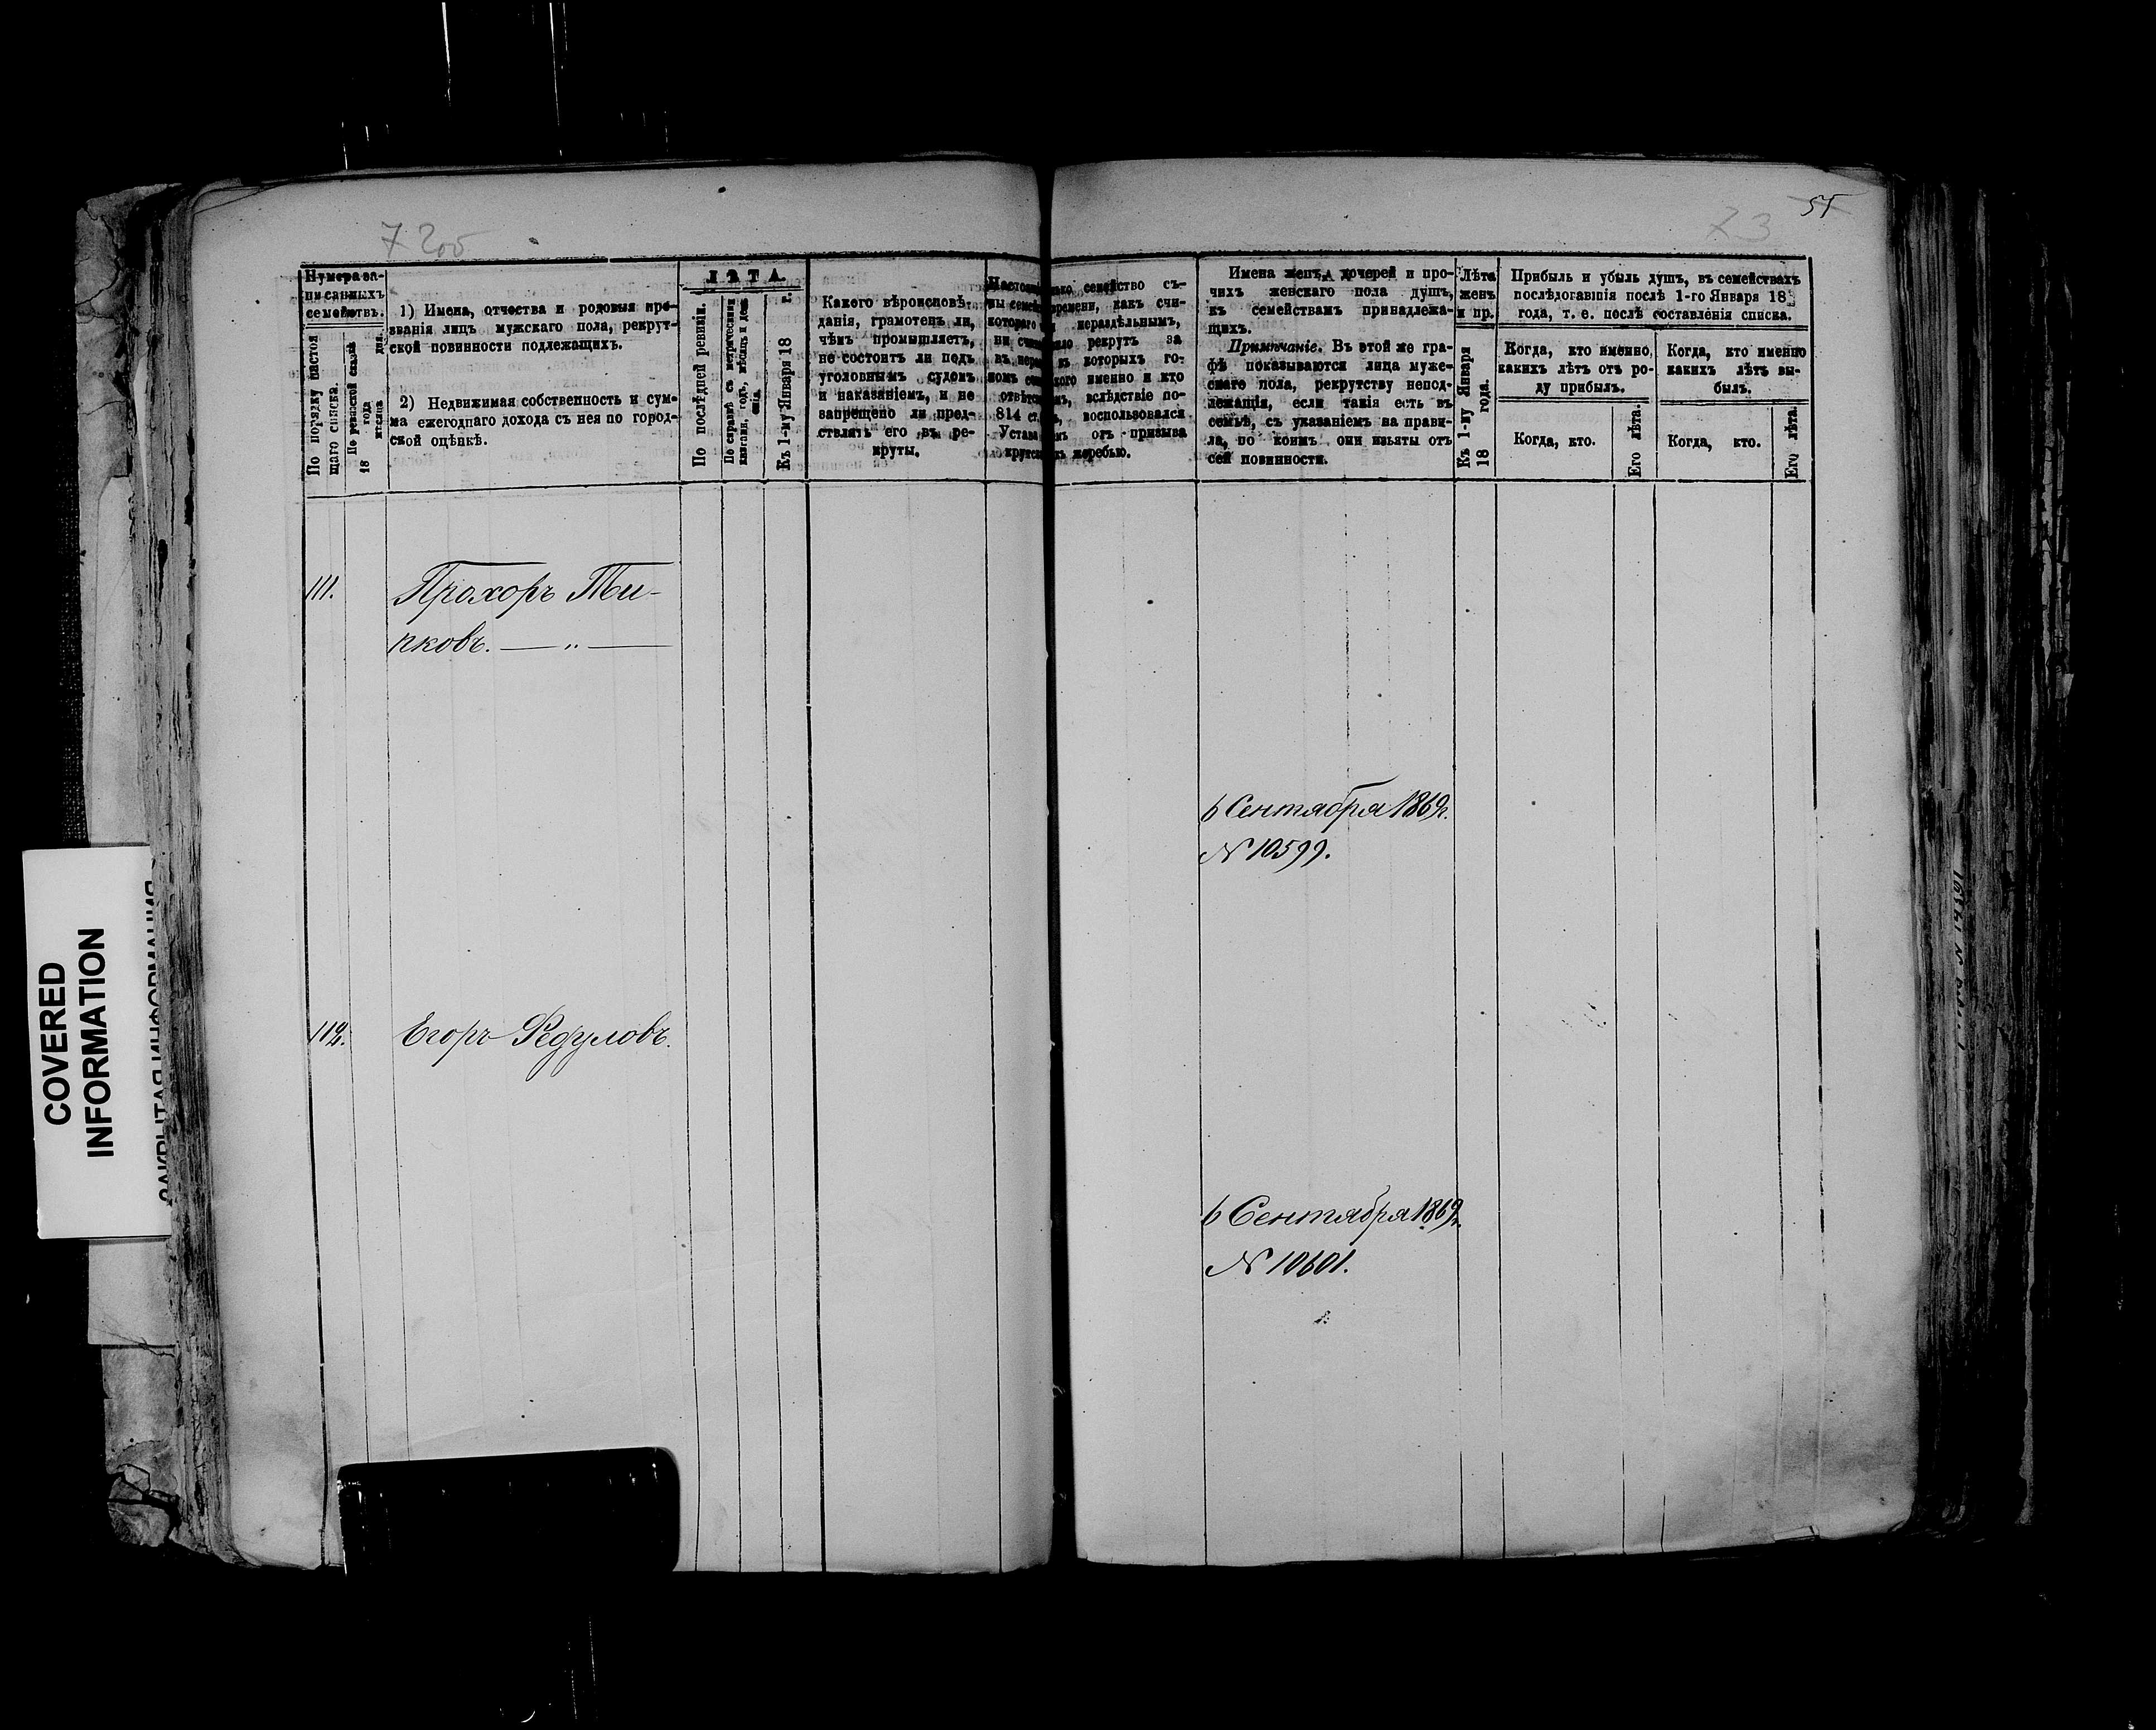 55
Нумера за-
писанныхъ
семействъ.
По порядку настоя
щаго списка.
По ревизской сказкѣ
18 года
1) Имена, отчества и родовыя про-
званія лицъ мужскаго пола, рекрут-
ской повинности подлежащихъ.
2) Недвижимая собственность и сум-
ма ежегоднаго дохода съ нея по город-
ской оцѣнкѣ.
ЛѢТА.
По послѣдней ревизіи.
По справкѣ съ метрическими
книгами, годъ, мѣсяцъ и день
Къ 1-му Января 18 г.
Какого вѣроисповѣ-
данія, грамотенъ ли,
чѣмъ промышляетъ,
не состоитъ ли подъ
уголовнымъ судомъ
и наказаніемъ, и не
запрещено ли пред-
ставлять его въ ре-
круты.
семейство съ
времени, какъ счи-
нераздѣльнымъ,
рекрутъ за
которыхъ го-
именно и кто
вслѣдствіе по-
814 ст. воспользовался
отъ призыва
жеребью.
Имена женъ, дочерей и про-
чихъ женскаго пола душъ,
къ семействамъ принадлежа-
щихъ.
Примѣчаніе. Въ этой же гра-
фѣ показываются лица муже-
скаго пола, рекрутству непод-
лежащія, если такія есть въ
семьѣ, съ указаніемъ на прави-
ла, по коимъ они изъяты отъ
сей повинности.
Лѣта
женъ
и пр.
Къ 1-му Января
18 года.
Прибыль и убыль душъ, въ семействахъ
послѣдовавшія послѣ 1-го Января 18
года, т. е. послѣ составленія списка.
Когда, кто именно,
какихъ лѣтъ отъ ро-
ду прибылъ.
Когда, кто именно
какихъ лѣтъ вы-
былъ.
Когда, кто.
Его лѣта.
Когда, кто.
Его лѣта.
111. Прохоръ Ти-
пковъ. — „ —
6 Сентября 1869г.
№ 10599.
112. Егоръ Федуловъ.
6 Сентября 1869г.
№ 10601.
COVERED
INFORMATION
ЗАКРЫТАЯ ИНФОРМАЦИЯ